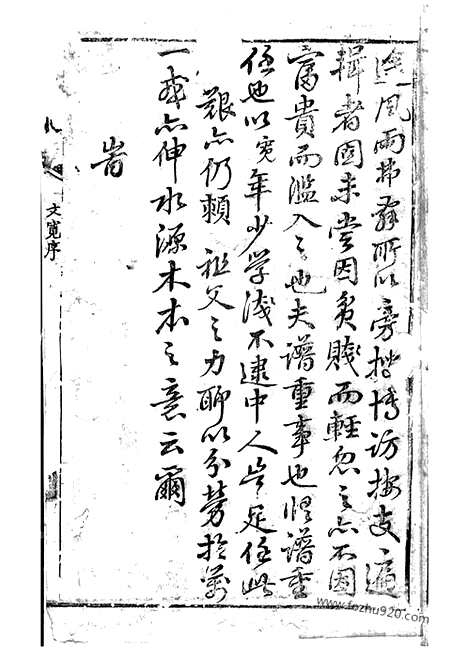 風雨弗辭所以旁搜博访按支
輯者固未嘗因貧賤而輕忽之亦不因
富貴而濫入之也夫譜重事也修譜重
任也以寬年少学淺不逮中人豈足任此
艱亦仍賴 祖父之力聊以分勞於萬
一或亦伸水源木本之意云爾
旹
文寬序
www.fozhu920.com